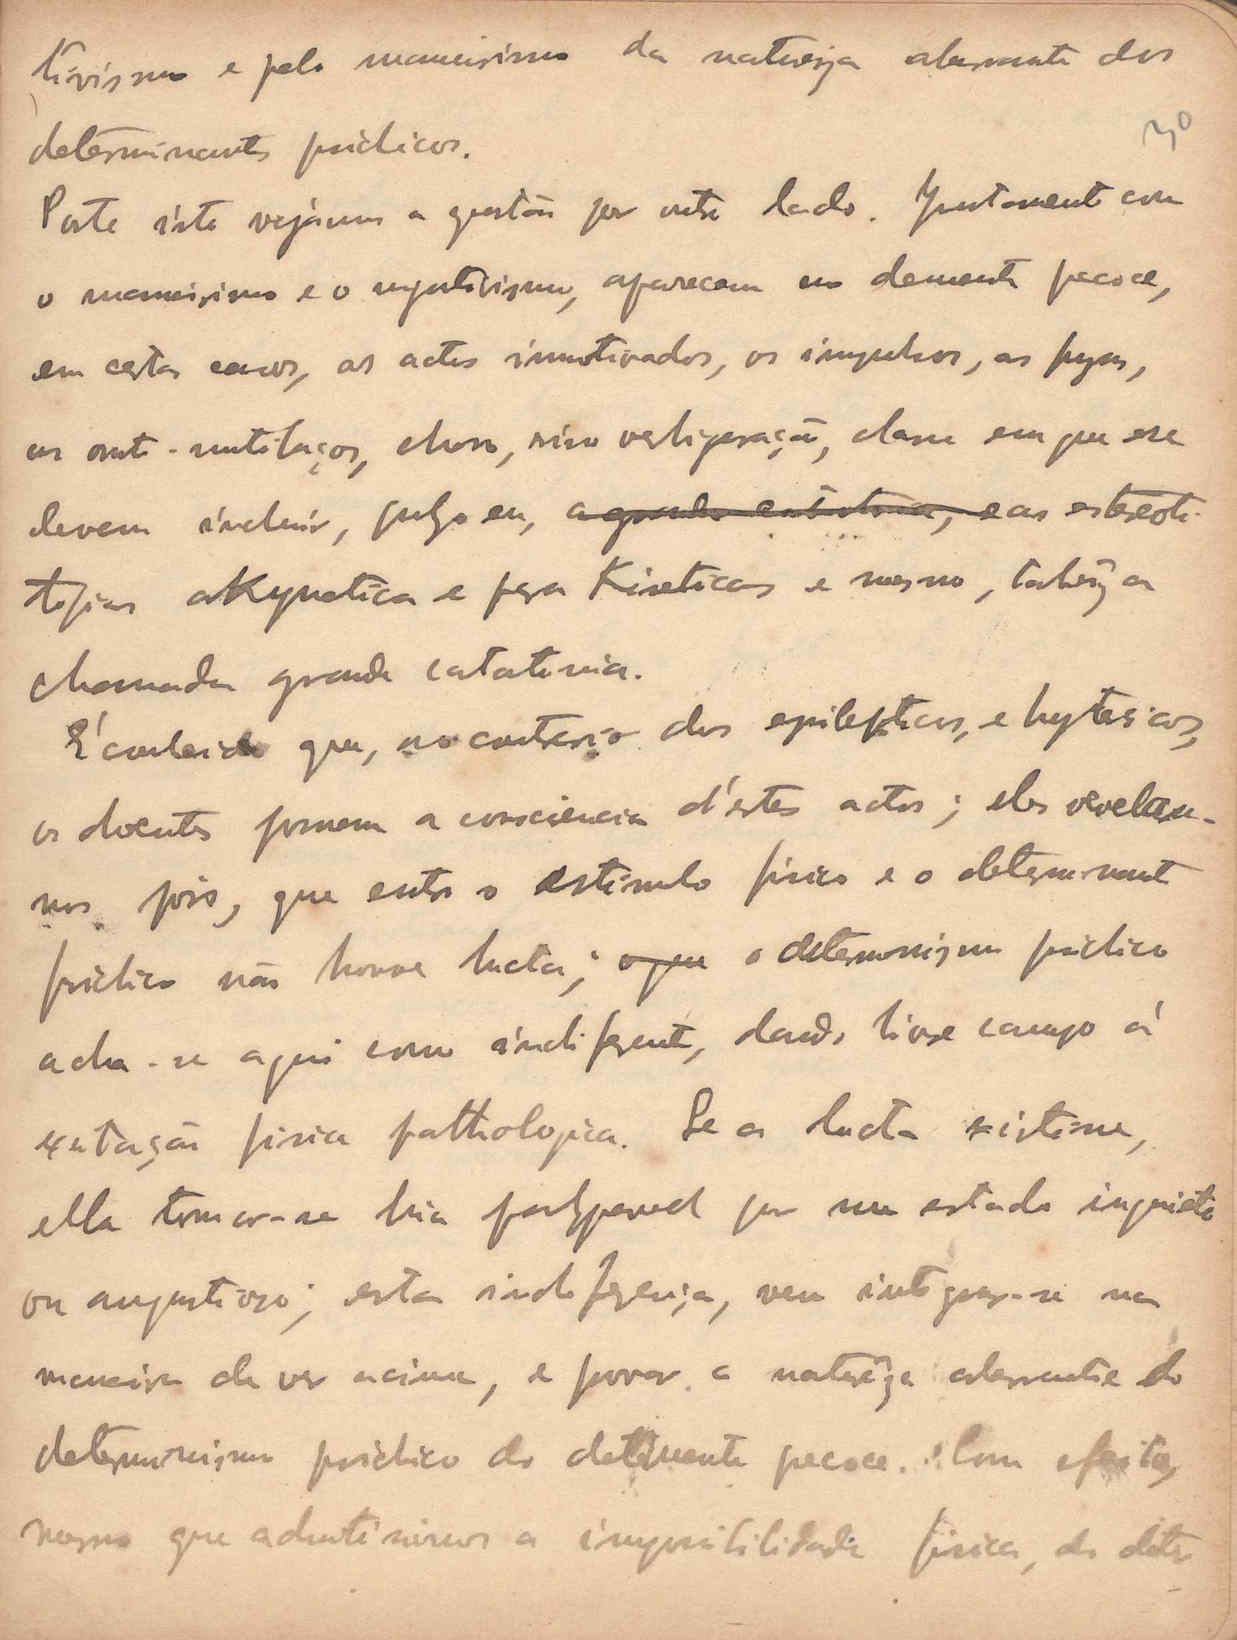 tivismo e pelo maneirismo da natureza aberrante dos
30
determinants psichicos.
Posto isto vejâmos a questão por outro lado. Juntamente com
o maneirismo e o negativismo, aparecem no demente pecoce,
em certos casos, os actos immotivados, os impulsos, as fugas,
as auto-mutilaços, choro, riso verbigeração, classe em que se
devem incluir, julgo eu, a grande catatonia, e as estereoti-
tipias akynetica e para Kineticas e mesmo, talvêz a
chamada grande catatonia.
É conhecido que, ao contrario dos epilepticos, e hystericos,
os doentes possuem a consciencia d'estes actos; eles revelam-
nos pois, que entre o estimulo fisico e o determinant
psichico não houve lucta; o que o determinismo psichico
acha-se aqui como indiferente, dando livre campo á
exitação fisica pathologica. Se a lucta existisse,
ella tornar-se hia por um estado inquieto
ou angustioso; esta indiferença, vem integrar-se na
maneira de ver acima, e provar a naturêza aberrante do
determinismo psichico do demente pecoce. Com efeito,
mesmo que admitissimos a impossibilidade fisica, do deter